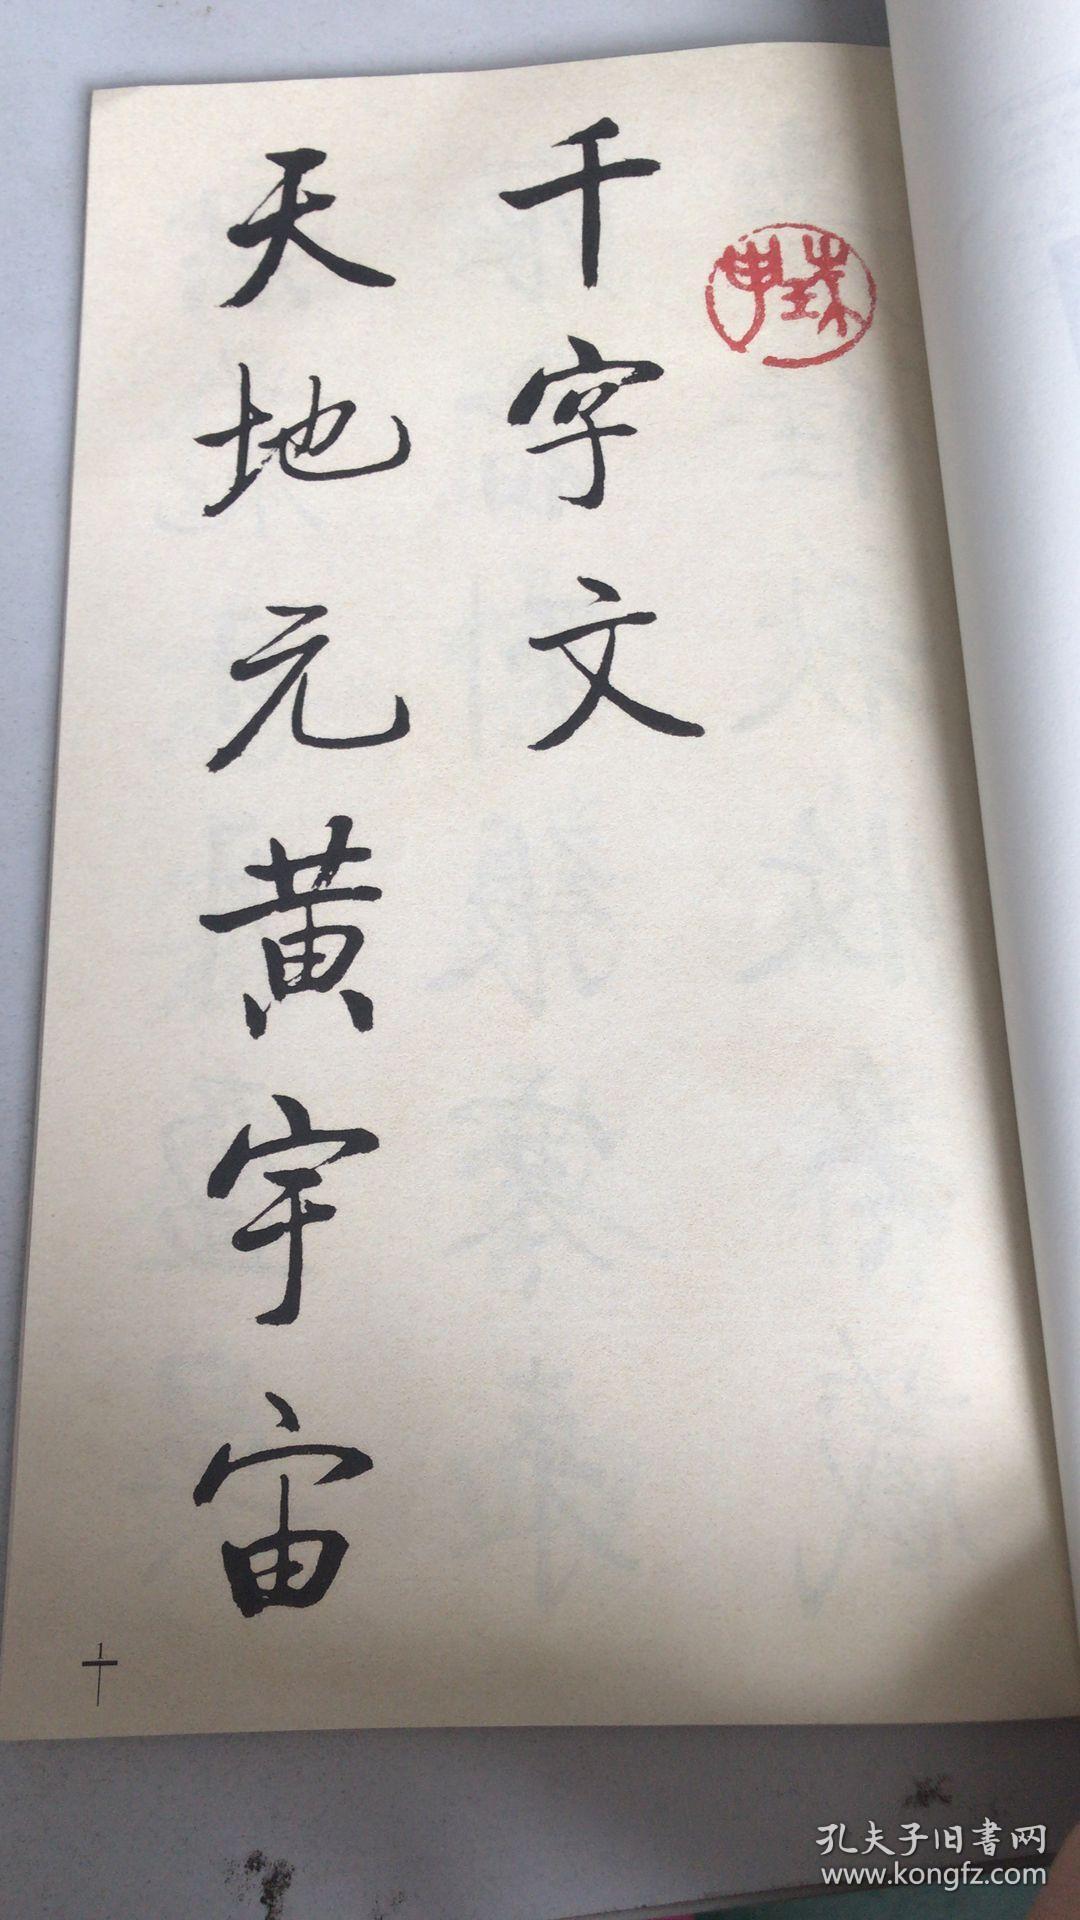 千字文
天地元黄宇宙
1
孔夫子旧書网
www.kongfz.com